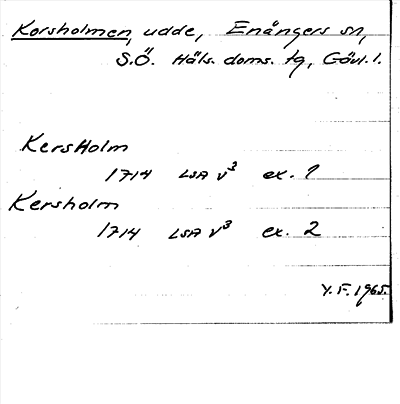 Korsholmen, udde, Enångers sn,
S.Ö. Häls. doms. tg, Gävl. l.
KersHolm
1714 LSA V³ ex. 1
Kersholm
1714 LSA V³ ex. 2
Y. F. 1965.